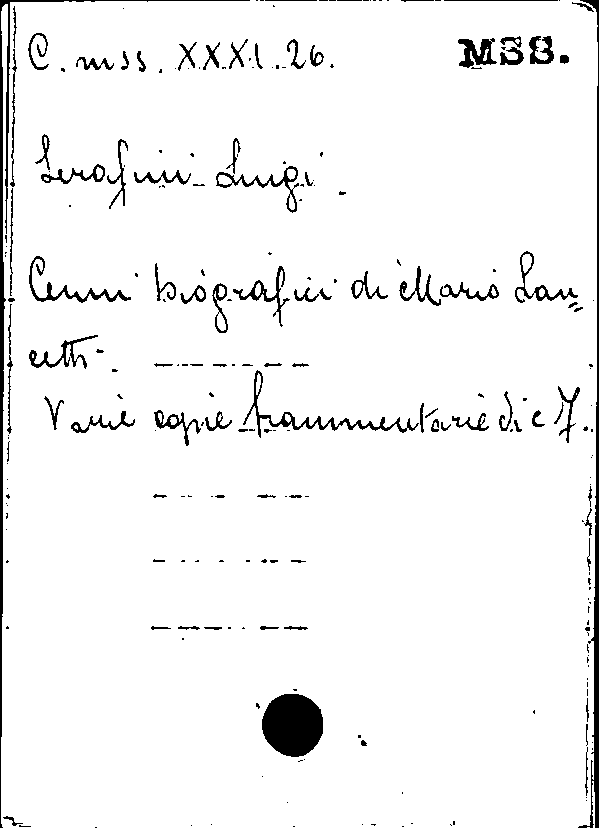 C. mss. XXXI.26. MSS.
Serafini Luigi.
Cenni biografici di Mario Lan=
cetti.
Varie copie frammentarie di c 7.